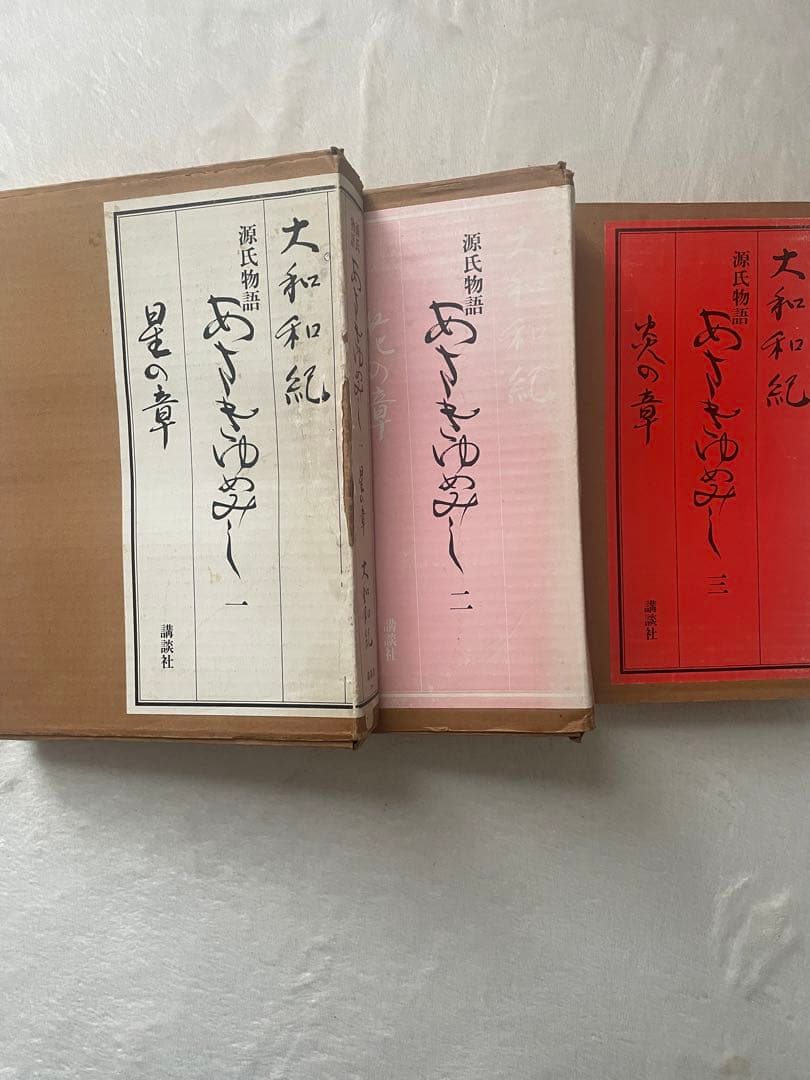 大和和紀
源氏物語
あさきゆめみし 一
星の章
講談社
源氏物語 あさきゆめみし 一 星の章 大和和紀
大和和紀
源氏物語
あさきゆめみし 二
花の章
講談社
大和和紀
源氏物語
あさきゆめみし 三
炎の章
講談社